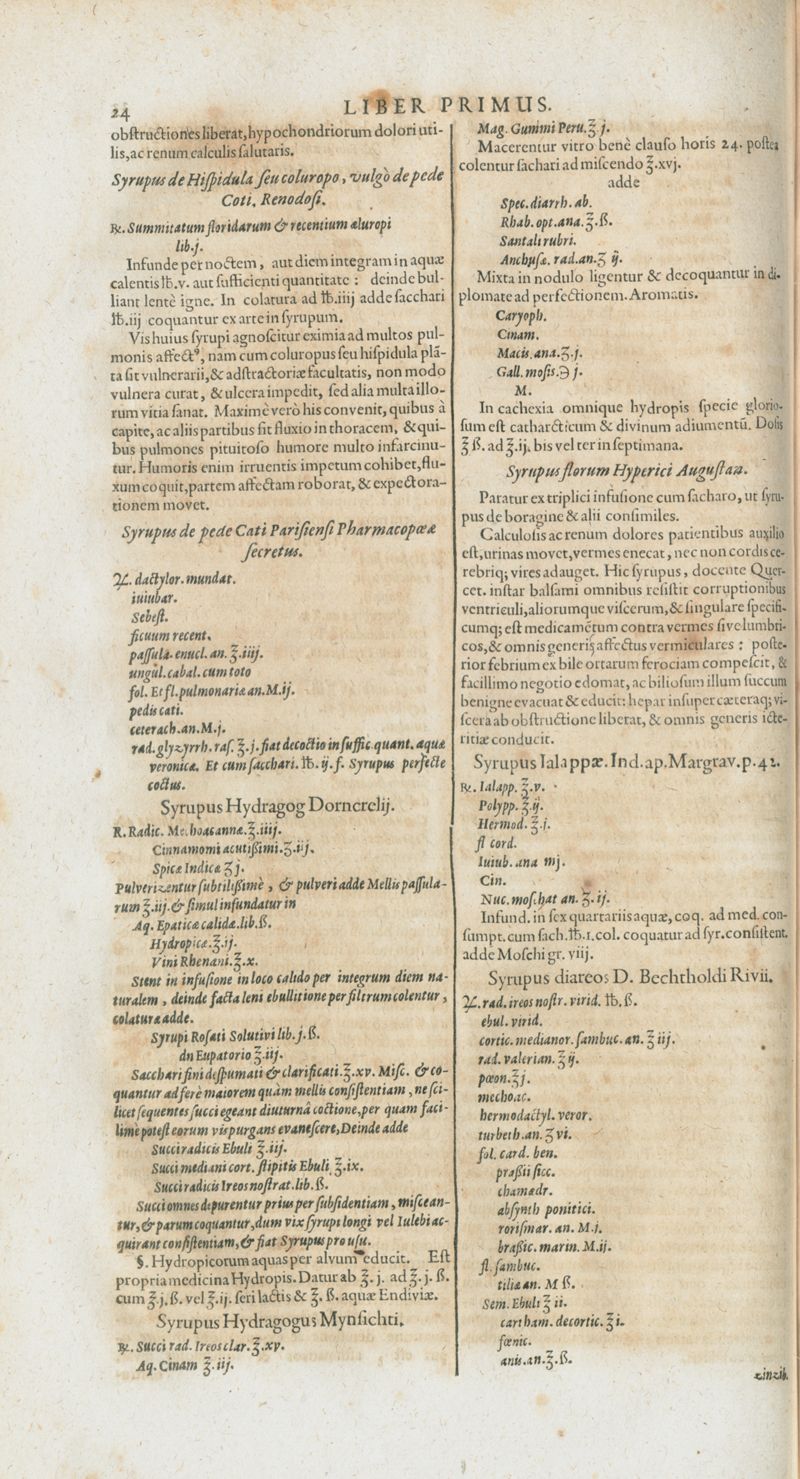 24
LIBER PRIMUS.
obstructiones liberat, hypochondriorum dolori uti-
lis, ac renum calculis salutaris.
Syrupus de Hispidula seu coluropo, vulgò de pede
Coti, Renodosi.
℞. Summitatum floridarum & recentium æluropi
lib.j.
Infunde per noctem, aut diem integram in aquæ
calentis ℔.v. aut sufficienti quantitate : deinde bul-
liant lentè igne. In colatura ad ℔.iiij adde sacchari
℔.iij coquantur ex arte in syrupum.
Vis huius syrupi agnoscitur eximia ad multos pul-
monis affectꝰ, nam cum coluropus seu hispidula plã-
ta sit vulnerarii, & adstractoriæ facultatis, non modo
vulnera curat, & ulcera impedit, sed alia multa illo-
rum vitia sanat. Maximè verò his convenit, quibus à
capite, ac aliis partibus fit fluxio in thoracem, & qui-
bus pulmones pituitoso humore multo infarcinu-
tur. Humoris enim irruentis impetum cohibet, flu-
xum coquit, partem affectam roborat, & expectora-
tionem movet.
Syrupus de pede Cati Parisiensi Pharmacopœæ
secretus.
♃. dactylor. mundat.
iuiubar.
Sebest.
ficuum recent.
passulæ. enucl. an. ℥.iiij.
ungul. cabal. cum toto
fol. Et fl. pulmonariæ an. M.ij.
pedis cati.
ceterach. an. M.j.
rad. glyzyrrh. ras. ℥.j. fiat decoctio in suffic. quant. aquæ
veronicæ. Et cum sacchari. ℔. ij. f. Syrupus perfecte
coctus.
Syrupus Hydragog Dornerelij.
R. Radic. Mechoacannæ. ℥.iiij.
Cinnamomi acutißimi. ʒ.iij.
Spicæ Indicæ ʒ j.
Pulverizentur subtilißimè, & pulveri adde Mellis passula-
rum ℥.iij. & simul infundatur in
Aq. Epaticæ calidæ. lib.ß.
Hydropicæ. ℥.ij.
Vini Rhenani. ℥.x.
Stent in infusione in loco calido per integrum diem na-
turalem, deinde facta leni ebullitione per filtrum colentur,
colaturæ adde.
Syrupi Rosati Solutivi lib.j.ß.
dn Eupatorio ℥.iij.
Sacchari fini despumati & clarificati. ℥.xv. Misc. & co-
quantur ad ferè maiorem quàm mellis consistentiam, ne sci-
licet sequentes succi egeant diuturnâ coctione, per quam faci-
limè potest eorum vis purgans evanescere, Deinde adde
Succi radicis Ebuli ℥.iij.
Succi mediani cort. stipitis Ebuli ℥.ix.
Succi radicis Ireos nostrat. lib.ß.
Succi omnes depurentur prius per subsidentiam, miscean-
tur, & parum coquantur, dum vix syrupi longi vel Iulebi ac-
quirant consistentiam, & fiat Syrupus pro usu.
§. Hydropicorum aquas per alvum educit. Est
propria medicina Hydropis. Datur ab ℥. j. ad ℥. j. ß.
cum ℥.j.ß. vel ℥.ij. seri lactis & ℥. ß. aquæ Endiviæ.
Syrupus Hydragogus Mynsichti.
℞. Succi rad. Ireos clar. ℥.xv.
Aq. Cinam ℥.iij.
Mag. Gummi Peru. ℥ j.
Macerentur vitro benè clauso horis 24. postea
colentur sachari ad miscendo ℥.xvj.
adde
Spec. diarrh. ab.
Rhab. opt. ana. ℥.ß.
Santali rubri.
Anchusæ. rad. an. ʒ ij.
Mixta in nodulo ligentur & decoquantur in di-
plomate ad perfectionem. Aromatis.
Caryoph.
Cinam.
Macis. ana. ʒ.j.
Gall. mosis. ℈ j.
M.
In cachexia omnique hydropis specie glorio-
sum est catharcticum & divinum adiumentũ. Dosis
℥ ß. ad ℥.ij. bis vel ter in septimana.
Syrupus florum Hyperici Augustan.
Paratur ex triplici infusione cum sacharo, ut syru-
pus de boragine & alii consimiles.
Calculosis ac renum dolores patientibus auxilio
est, urinas movet, vermes enecat, nec non cordis ce-
rebriq; vires adauget. Hic syrupus, docente Quer-
cet. instar balsami omnibus resistit corruptionibus
ventriculi, aliorumque viscerum, & singulare specifi-
cumq; est medicamẽtum contra vermes sive lumbri-
cos, & omnis generis affectus vermiculares : poste-
rior febrium ex bile ortarum ferociam compescit, &
facillimo negotio edomat, ac biliosum illum succum
benigne evacuat & educit: hepar insuper cæteraq; vi-
scera ab obstructione liberat, & omnis generis icte-
ritiæ conducit.
Syrupus Ialappæ. Ind. ap. Margrav. p. 42.
℞. Ialapp. ℥.v.
Polypp. ℥.ij.
Hermod. ℥.j.
fl cord.
Iuiub. ana mj.
Cin.
Nuc. mosc̣hat an. ʒ. ij.
Infund. in sex quartariis aquæ, coq. ad med. con-
sumpt. cum sach. ℔.1. col. coquatur ad syr. consistent.
adde Moschi gr. viij.
Syrupus diareos D. Bechtholdi Rivii.
♃. rad. ireos nostr. virid. ℔. ß.
ebul. virid.
cortic. medianor. sambuc. an. ℥ iij.
rad. valerian. ℥ ij.
pœon. ℥j.
mechoac.
hermodactyl. veror.
turbeth. an. ʒ vi.
fol. card. ben.
praßii sicc.
chamædr.
absynth ponitici.
rorismar. an. M.j.
braßic. marin. M.ij.
fl. sambuc.
tiliæ an. M ß.
Sem. Ebuli ℥ ii.
cartham. decortic. ℥ i.
fœnic.
anis. an. ℥. ß.
zinzib.